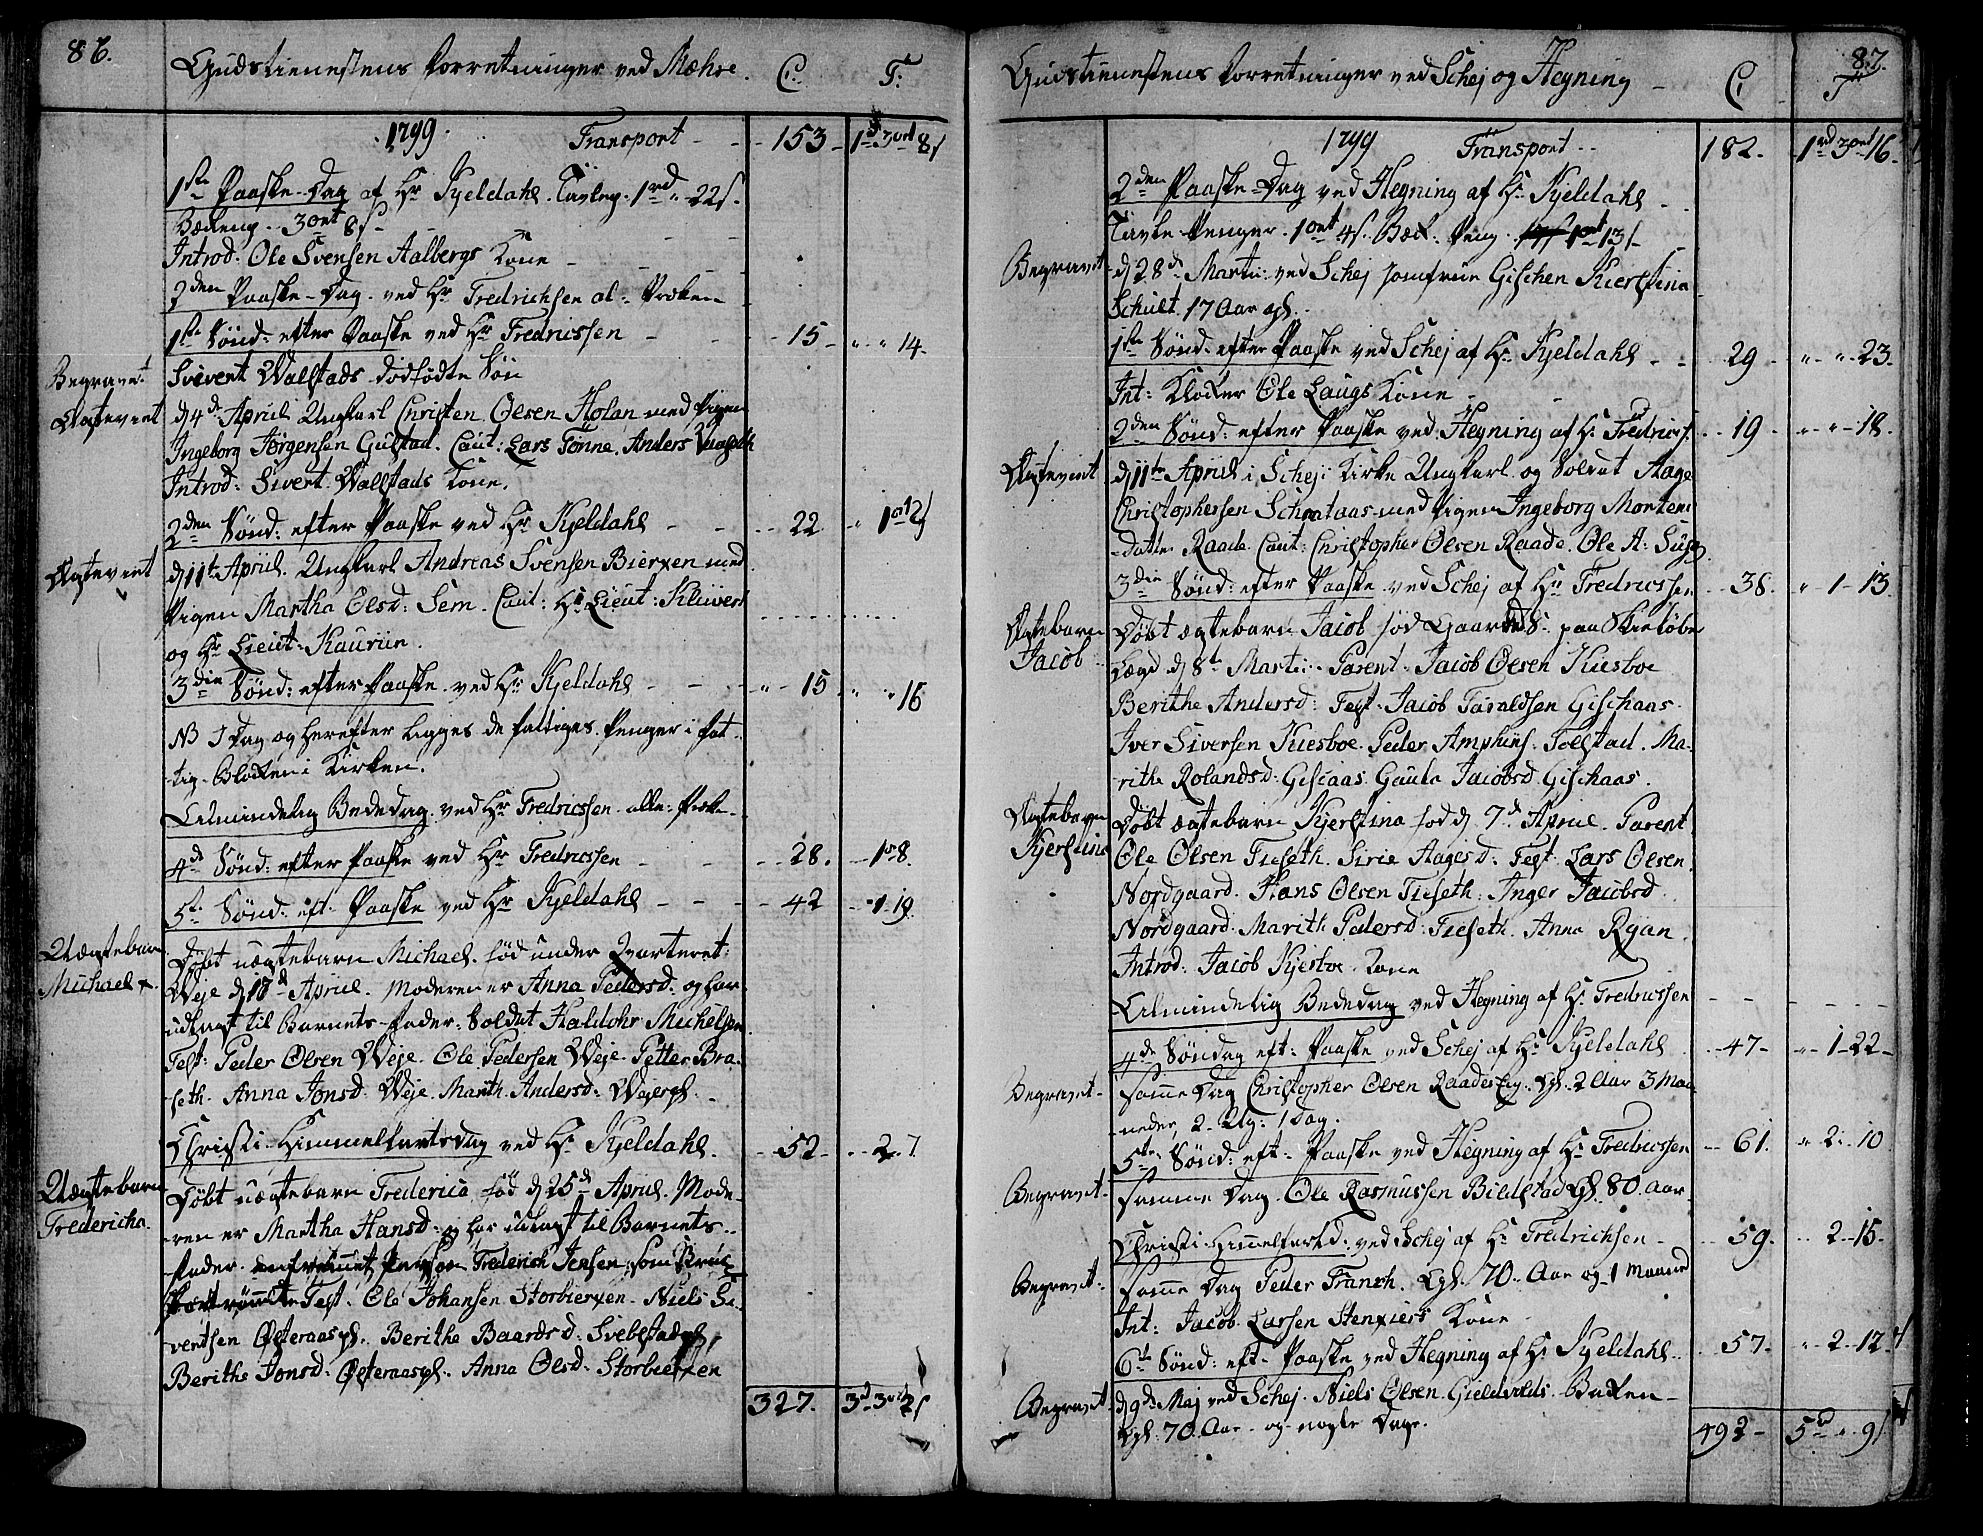 86.
Gudstienestens Forretninger ved Mæhre. C: T:
1799. Transport - - 153 - 1rd 3ort 8s
1ste Paaske-Dag af Hr Kjeldahl. Tavlep. 1rd " 22s.
Bækenp. 3ort 8s
Introd. Ole Svensen Aalbergs Kone
2den Paaske-Dag ved Hr Fredrichsen al. Præken
1ste Sønd: efter Paaske ved Hr Fredricssen - 15 - " " 14.
Begravet Sivert Walstads dødfødte Søn
Ægteviet d 4de Apriil Ungkarl Christen Olsen Holan med Pigen
Ingeborg Jørgensen Gulstad. Caut: Lars Tønne. Anders
Introd: Sivert Wallstads Kone.
2den Sønd: efter Paaske ved Hr Kjeldahl - - 22 " 1ort 2s
Ægteviet d 11te Apriil. Ungkarl Andreas Svensen Bierxen med
Pigen Martha Olsd: Sem. Caut: Hr Lieut: Klüwer
og Hr Lieut: Kaurin.
3die Sønd: efter Paaske ved Hr Kjeldahl - - - 15 " " 16
NB I Dag og herefter ligges de fattiges Penger i Fat-
tig-Blokken i Kirken.
Almindelig Bededag ved Hr Fredricssen. alle. Præk-
4de Sønd: efter Paaske ved Hr Fredricssen - - 28. - 1 - 8.
5te Sønd: eft. Paaske ved Hr Kjeldahl - - - 42 - 1-19.
Uægtebarn
Michael
Døbt uægtebarn Michael. fød under Qvarteret:
Weje d 18d Apriil. Moderen er Anna Pedersd. og har
udlagt til Barnets-Fader: Soldat Haldohr Michelsen
Test: Peder Olsen Weje. Ole Pedersen Weje. Petter Bra-
seth. Anna Jonsd: Weje. Marith Andersd: Wejepl.
Christi Himmelfartsdag ved Hr Kjeldahl. - 52 - - 2 - 7
Uægtebarn
Fredericha.
Døbt uægtebarn Frederica, fød d 25d Apriil. Mode-
ren er Martha Hansd: og har udlagt til Barnets-
Fader. en fremmet Person Frederich Jensen, som
Test. Ole Johansen Storbierxen. Niels Si-
vertsen Østeraaspl. Berithe Baardsd: Svebstadpl
Berithe Jonsd: Østeraaspl. Anna Olsd: Storbierxen
327. 3rd 3ort 2s
87.
Gudstienestens Forretninger ved Schej og Hegning - C. T
1799 Transport - - 182. 1rd 3ort 16.
2den Paaske-Dag ved Hegning af Hr Kjeldahl
Tavle-Penger. 1ort 4s. Bæk: Peng. 1ort 13s
Begravet d 28d Martii ved Schej Jomfrue Gischen Kierstina
Schult 17 Aar gl.
1ste Sønd. efter Paaske ved Schej af Hr Kjeldahl - - 29 - " " 23.
Int: Klokker Ole Laugs Kone
2den Sønd: efter Paaske ved Hegning af Hr Fredricss. - 19 - " " - 18.
Ægteviet d 11te Apriil i Schej Kirke Ungkarl og Soldat Aage
Christophersen Schrataas med Pigen Ingeborg Mortens-
Datter Raade. Caut: Christopher Olsen Raade. Ole A:
3die Sønd: efter Paaske ved Schej af Hr Fredricssen - 38. " 1-13.
Ægtebarn
Jacob
Døbt ægtebarn Jacob fød paa Skieløber
Lægd d 8de Martii. Parent. Jacob Olsen Kiesboe
Berithe Andersd: Test. Jacob Taraldsen Gischaas.
Iver Siversen Kiesboe. Peder Amphins. Tolstad. Ma-
rithe Rolandsd: Giscaas. Gaula Jacobsd. Gischaas.
Ægtebarn
Kjerstina
Døbt ægtebarn Kjerstina fød d 7d Apriil. Parent
Ole Olsen Tieseth. Sirie Aagesd: Test. Lars Olsen
Nordgaard. Hans Olsen Tieseth. Inger Jacobsd
Nordgaard. Marith Pedersd: Tieseth. Anna Ryan.
Introd: Jacob Kjesboe. Kone
Almindelig Bededag ved Hegning af Hr Fredricssen - - - - -
4de Søndag eft. Paaske ved Schej af Hr Kjeldahl - 47 - " 1-22-
Begravet- samme Dag Christopher Olsen Raades gl. 2 Aar 3 Maa-
neder, 2 Ug: 1 Dag.
5te Sønd: eft. Paaske ved Hegning af Hr Fredricssen - 61. " 2 - 10
Begravet- samme Dag. Ole Rasmussen Bildstad gl. 80. Aar.
Christi-Himmelfartd: ved Schej af Hr Fredrichsen - - 59. - 2-15.
Begravet- samme Dag Peder Franxh. gl. 70. Aar og 1 Maaned
Int: Jacob Larsen Stenxiers Kone
6te Sønd: eft. Paaske ved Hegning af Hr Kjeldahl - 57. - 2-12
Begravet- d 9de Maj ved Schej. Niels Olsen Gieldvolds-Bakken-
gl. 70. Aar og nogle Dage.
492 - 5rd " 9s